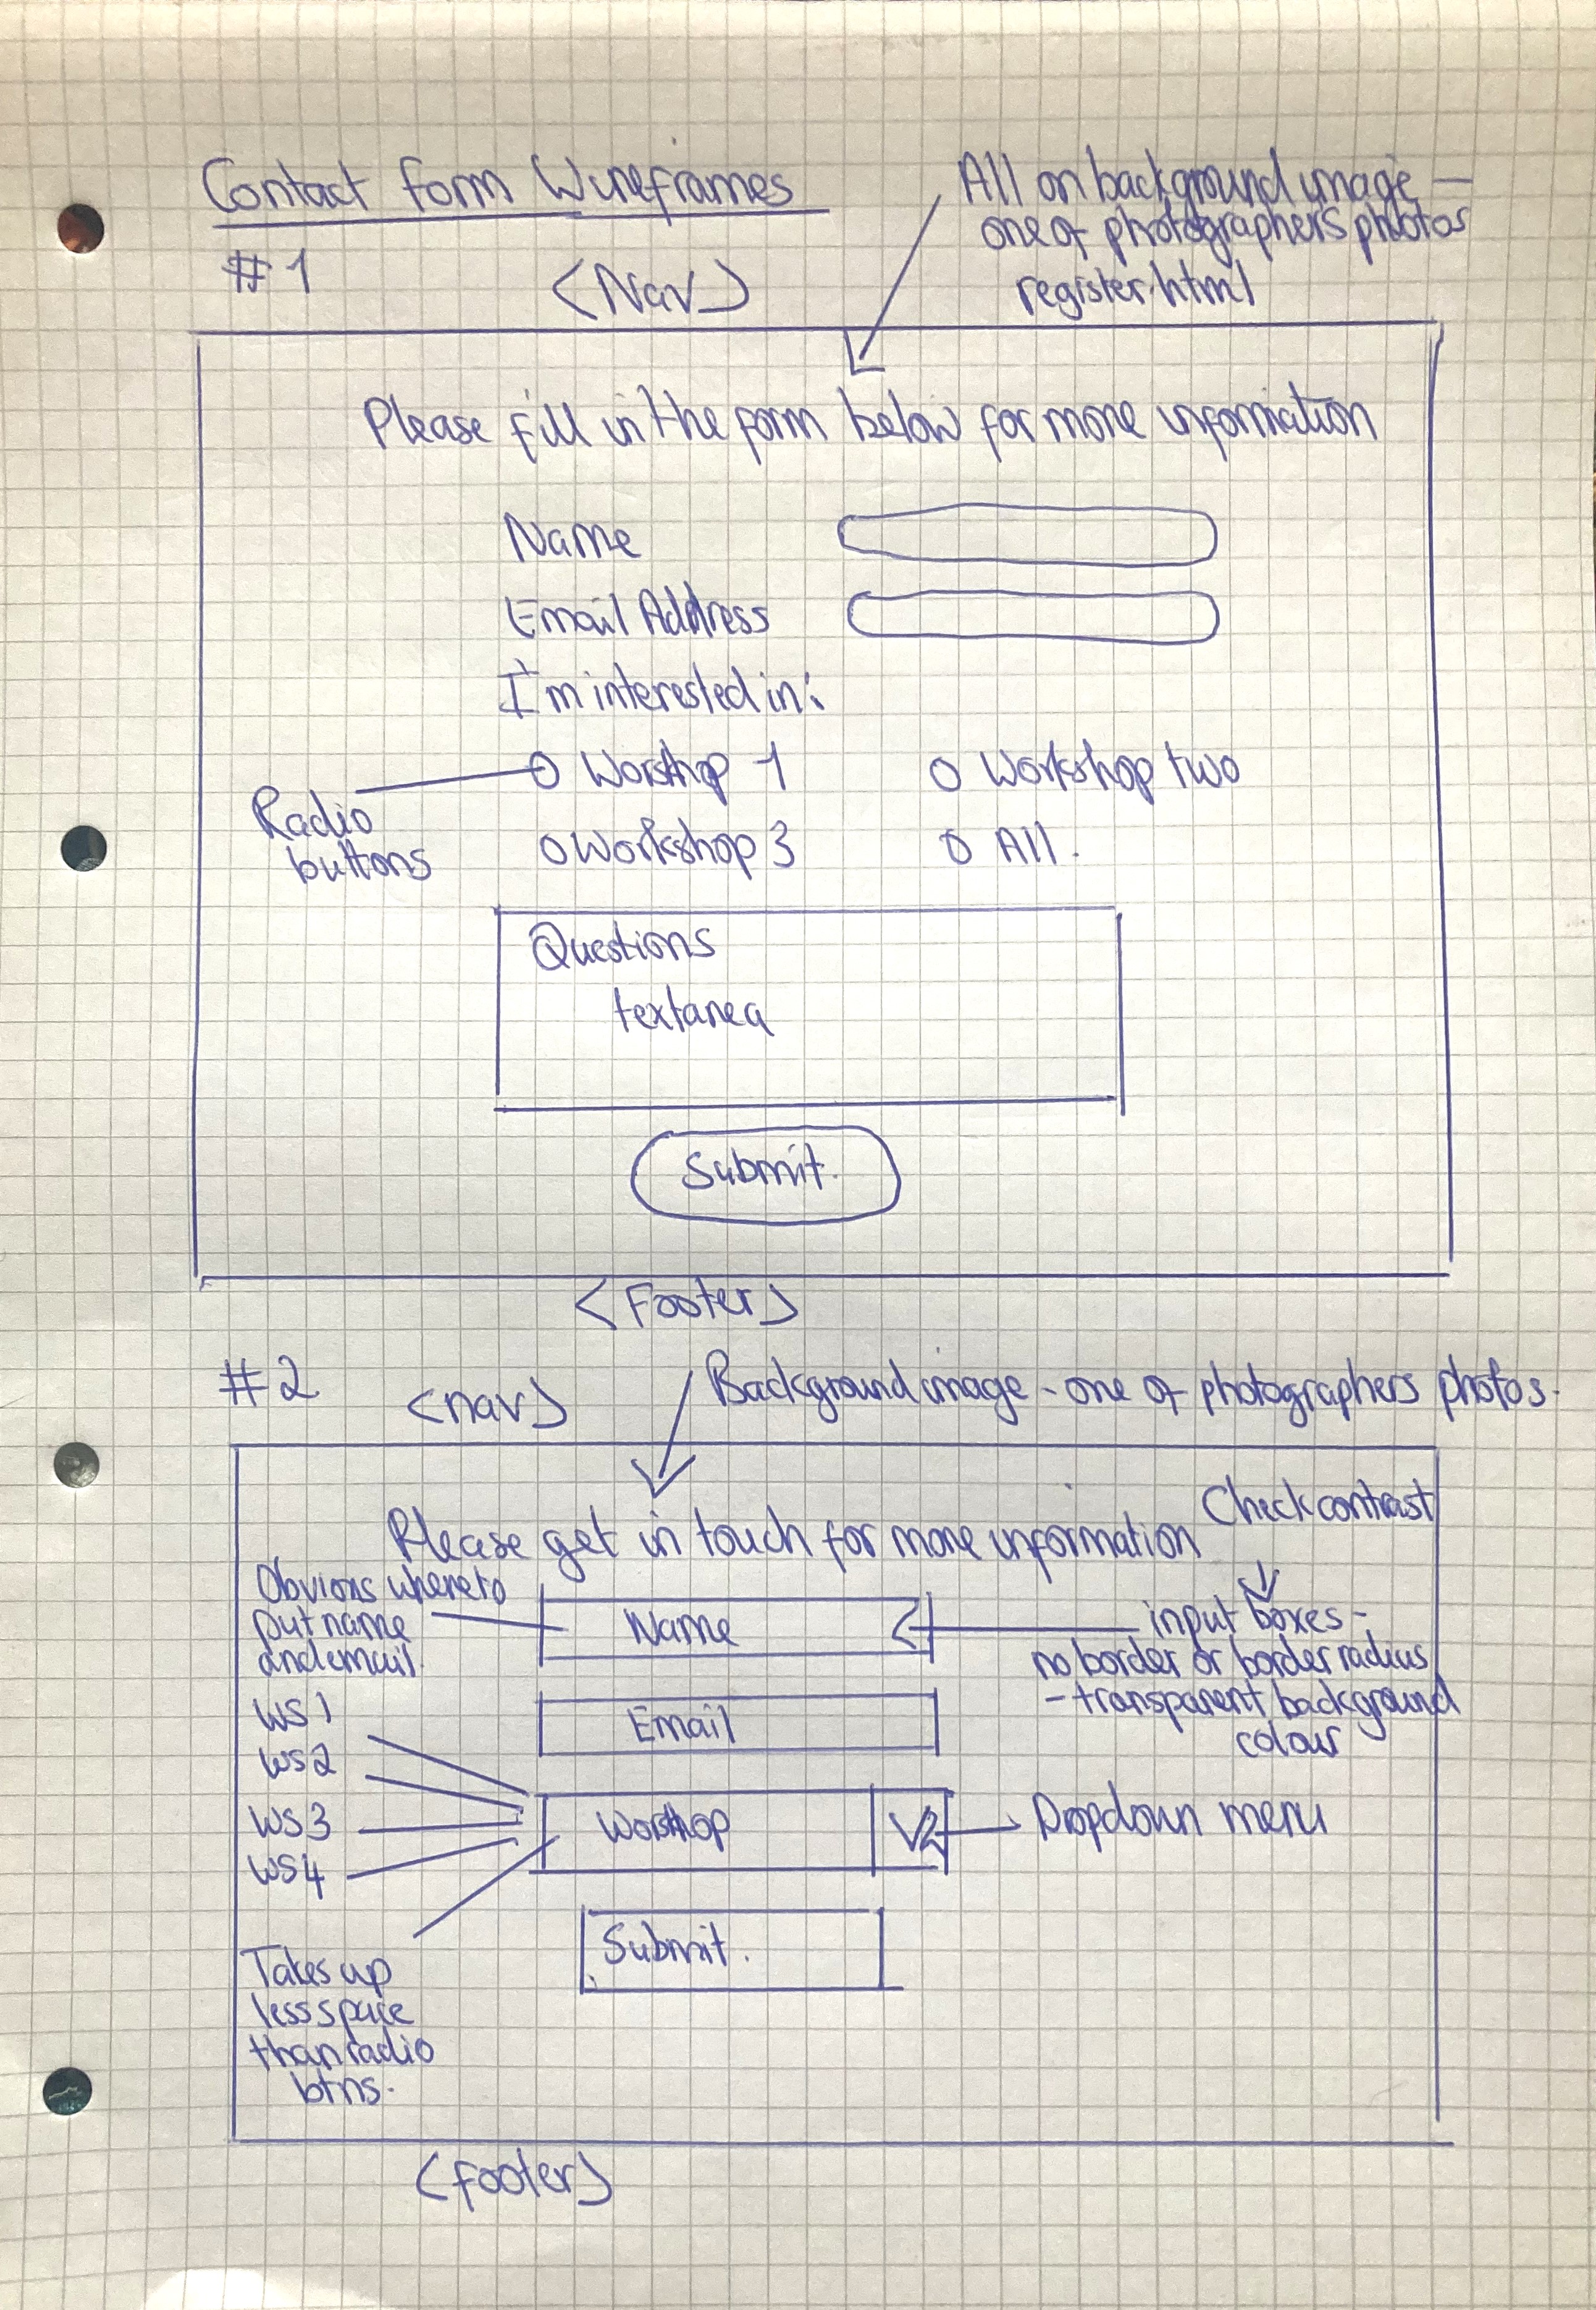 Contact form Wireframes
All on background image -
one of photographers photos
register.html
#1
<Nav>
Please fill in the form below for more information
Name
Email Address
I'm interested in:
Worshop 1
Workshop two
Radio
buttons
Workshop 3
All.
Questions
textarea
Submit.
<Footer>
#2
<nav>
Background image - one of photographers photos.
Check contrast
Please get in touch for more information
Obvious where to
put name
and email.
Name
input boxes -
no border or border radius
- transparent background
colour
Email
WS1
WS2
WS3
WS4
Worshop
Dropdown menu
Submit.
Takes up
less space
than radio
btns.
<footer>